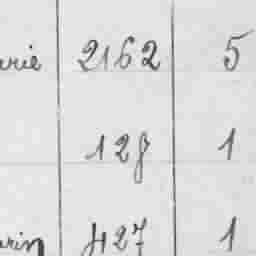 arie 2162 5
128 1
arin 427 1